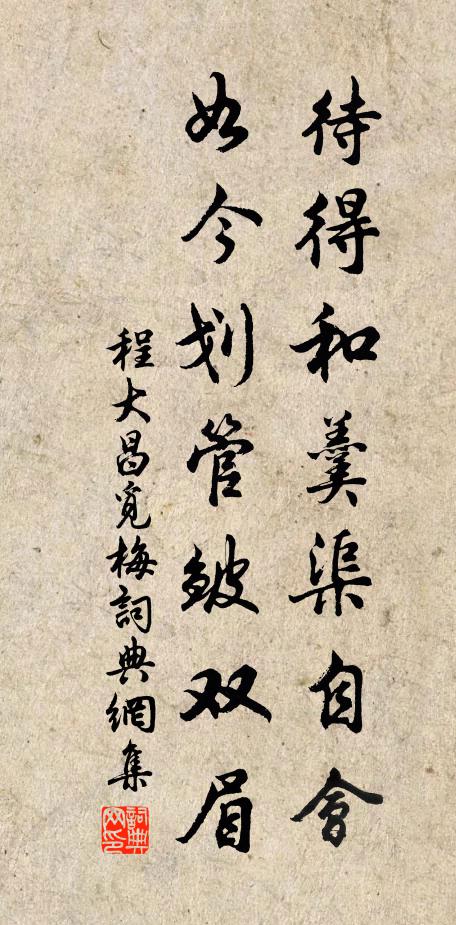 待得和羹渠自會
如今划管皴双眉
程大昌覓梅詞典網集
詞典網印